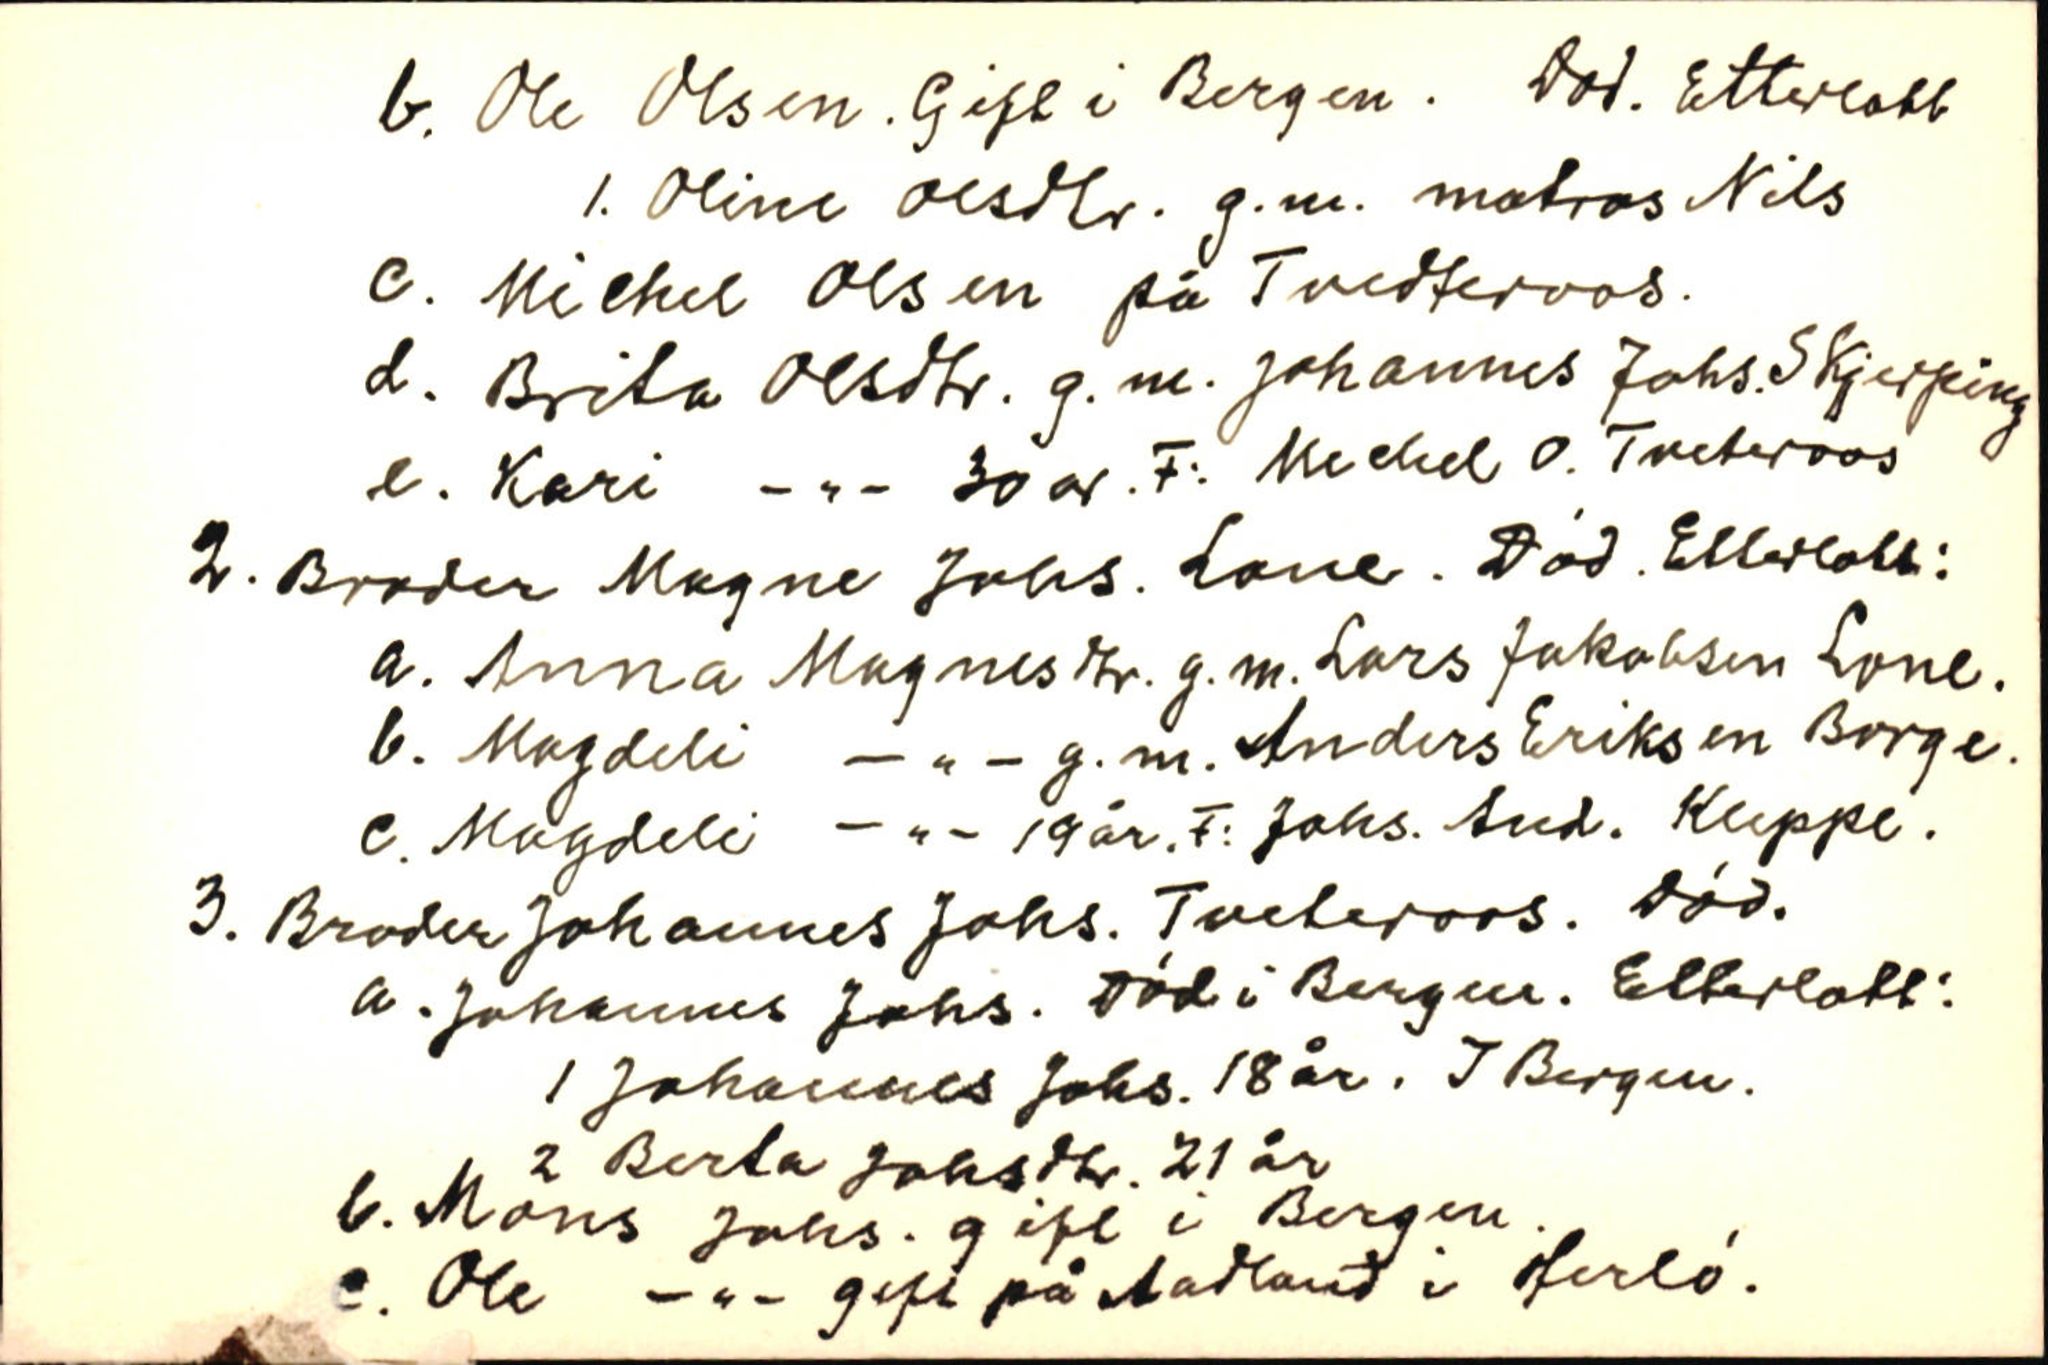 b. Ole Olsen. Gift i Bergen. Død. Etterlatt
1. Oline Olsdtr. g.m. matros Nils
c. Michel Olsen på Tvedteraas.
d. Brita Olsdtr. g.m. Johannes Johs. Skjerping
e. Kari -"- 30 år. F: Mechel O. Tveteraas
2. Broder Magne Johs. Lone. Død. Etterlatt:
a. Anna Magnesdtr. g.m. Lars Jakobsen Lone.
b. Magdeli -"- g.m. Anders Eriksen Borge.
c. Magdeli -"- 19 år. F: Johs. And. Kleppe.
3. Broder Johannes Johs. Tveteraas. Død.
a. Johannes Johs. Død i Bergen. Etterlatt:
1 Johannes Johs. 18 år. I Bergen.
2 Berta Johsdtr. 21 år
b. Mons Johs. gift i Bergen.
c. Ole -"- gift på Aadland i Herló.